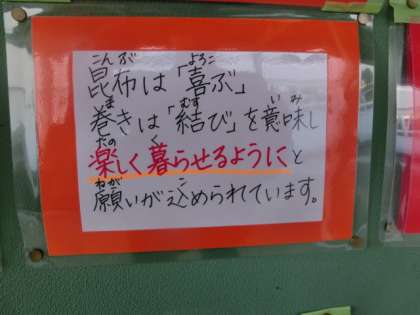 昆布は「喜ぶ」
巻きは「結び」を意味し
楽しく暮らせるようにと
願いが込められています。